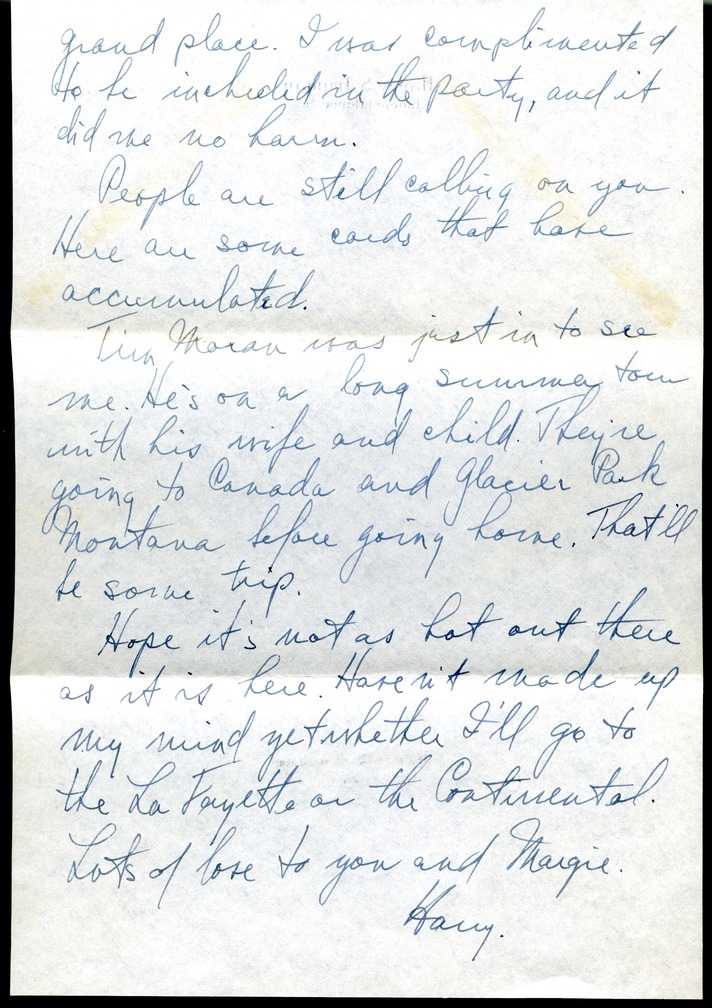 grand place. I was complimented
to be included in the party, and it
did me no harm.
People are still calling on you.
Here are some cards that have
accumulated.
Tim Moran was just in to see
me. He's on a long summer tour
with his wife and child. They're
going to Canada and Glacier Park
Montana before going home. That'll
be some trip.
Hope it's not as hot out there
as it is here. Haven't made up
my mind yet whether I'll go to
the La Fayette or the Continental.
Lots of love to you and Margie.
Harry.